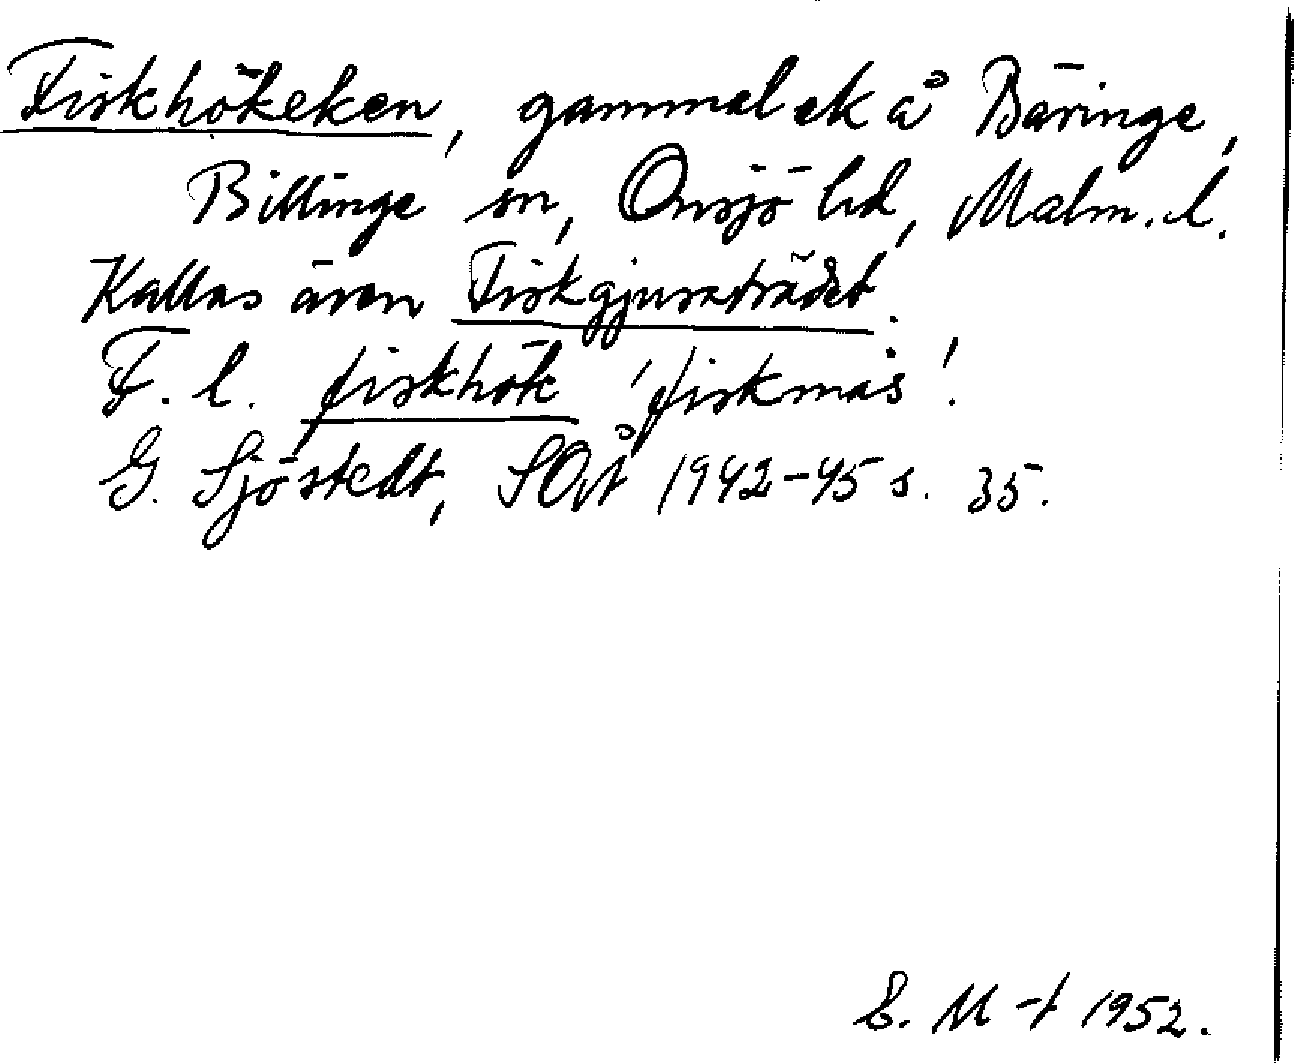 Fiskhökeken, gammal ek å Bäringe,
Billinge sn, Onsjö hd, Malm. l.
Kallas även Fiskgjuseträdet.
F. l. fiskhök 'fiskmås'.
G. Sjöstedt, SOÅ 1942-45 s. 35.
E. M-t 1952.